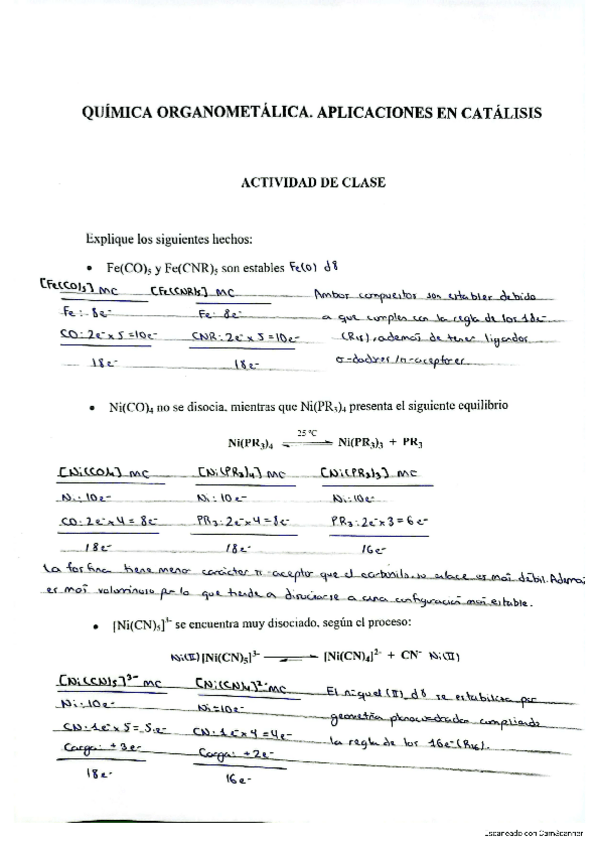 QUÍMICA ORGANOMETÁLICA. APLICACIONES EN CATÁLISIS
ACTIVIDAD DE CLASE
Explique los siguientes hechos:
• Fe(CO)5 y Fe(CNR)5 son estables Fe(0) d8
[Fe(CO)5] MC [Fe(CNR)5] MC
Fe: 8e- Fe: 8e-
CO: 2e- x 5 = 10e- CNR: 2e- x 5 = 10e-
18e- 18e-
Ambos compuestos son estables debido
a que cumplen con la regla de los 18e-
(R18), además de tener ligandos
σ-dadores/π-aceptores.
• Ni(CO)4 no se disocia, mientras que Ni(PR3)4 presenta el siguiente equilibrio
25 ºC
Ni(PR3)4 ⇌ Ni(PR3)3 + PR3
[Ni(CO)4] MC [Ni(PR3)4] MC [Ni(PR3)3] MC
Ni: 10e- Ni: 10e- Ni: 10e-
CO: 2e- x 4 = 8e- PR3: 2e- x 4 = 8e- PR3: 2e- x 3 = 6e-
18e- 18e- 16e-
La fosfina tiene menor carácter π-aceptor que el carbonilo, su enlace es más débil. Además
es más voluminoso por lo que tiende a disociarse a una configuración más estable.
• [Ni(CN)5]3- se encuentra muy disociado, según el proceso:
Ni(II) [Ni(CN)5]3- ⇌ [Ni(CN)4]2- + CN- Ni(II)
[Ni(CN)5]3- MC [Ni(CN)4]2- MC
Ni: 10e- Ni = 10e-
CN: 1e- x 5 = 5e- CN: 1e- x 4 = 4e-
Carga: +3e- Carga: +2e-
18e- 16e-
El niquel (II) d8 se estabiliza por
geometría planocuadrada cumpliendo
la regla de los 16e- (R16).
Escaneado con CamScanner